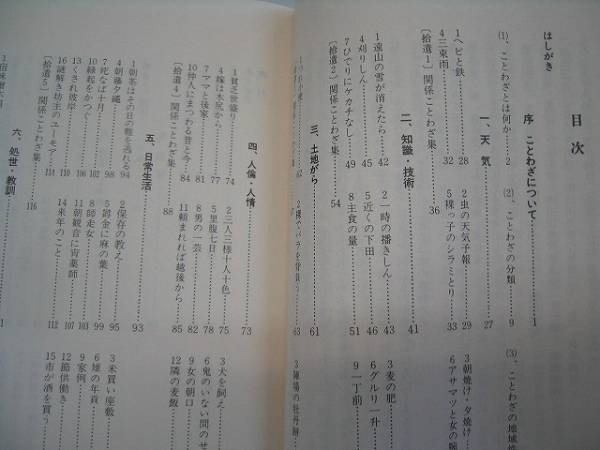 目次
はしがき
序 ことわざについて……1
(1)、ことわざとは何か……2
(2)、ことわざの分類……9
(3)、ことわざの地域性
一、天気……27
1 ヘビと鉄……28
2 虫の天気予報……29
3 朝焼け・夕焼け
4 三束雨……32
5 裸っ子のシラミとり……33
6 アサマツと女の腕
〔拾遺1〕関係ことわざ集……36
二、知識・技術……41
1 遠山の雪が消えたら……42
2 一時の播きしん……43
3 麦の肥
4 刈りしん……45
5 近くの下田……46
6 グルリ一升
7 ひでりにケカチなし……49
8 主食の量……51
9 一丁前
〔拾遺2〕関係ことわざ集……54
三、土地がら……61
62
2 裸でバラを背負う……63
3
四、人倫・人情……73
1 貧乏世盛り……74
2 三人三様十人十色……75
3 犬を飼え
4 嫁は木尻から……77
5 里腹七日……78
6 鬼のいない間のせ
7 ママと後家……81
8 男の一芸……82
9 女の朝口
10 仲人にまつわる昔と今……84
11 頼まれれば越後から……85
12 隣の麦飯
〔拾遺4〕関係ことわざ集……88
五、日常生活……93
1 朝茶はその日の難を逃れる……94
2 保存の教え……95
3 米買い座敷
4 朝藤夕縄……98
5 鬱金に麻の葉……99
6 雄の年貢
7 死なば十月……102
8 師走女……103
9 家例
10 縁起をかつぐ……106
11 朝観音に宵薬師……107
12 節供働き
13 くされ彼岸……108
14 来年のこと……112
15 市が酒を買う
16 謎解き坊主のユーモア……111
〔拾遺5〕関係ことわざ集……116
六、処世・教訓